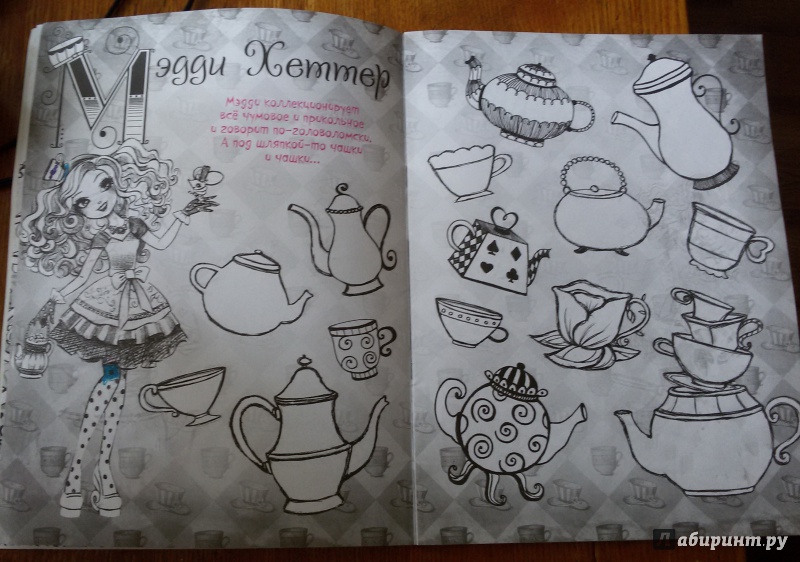 Мэдди Хеттер
Мэдди коллекционирует
всё чумовое и прикольное
и говорит по-головоломски.
А под шляпкой-то чашки
и чашки...
Лабиринт.ру